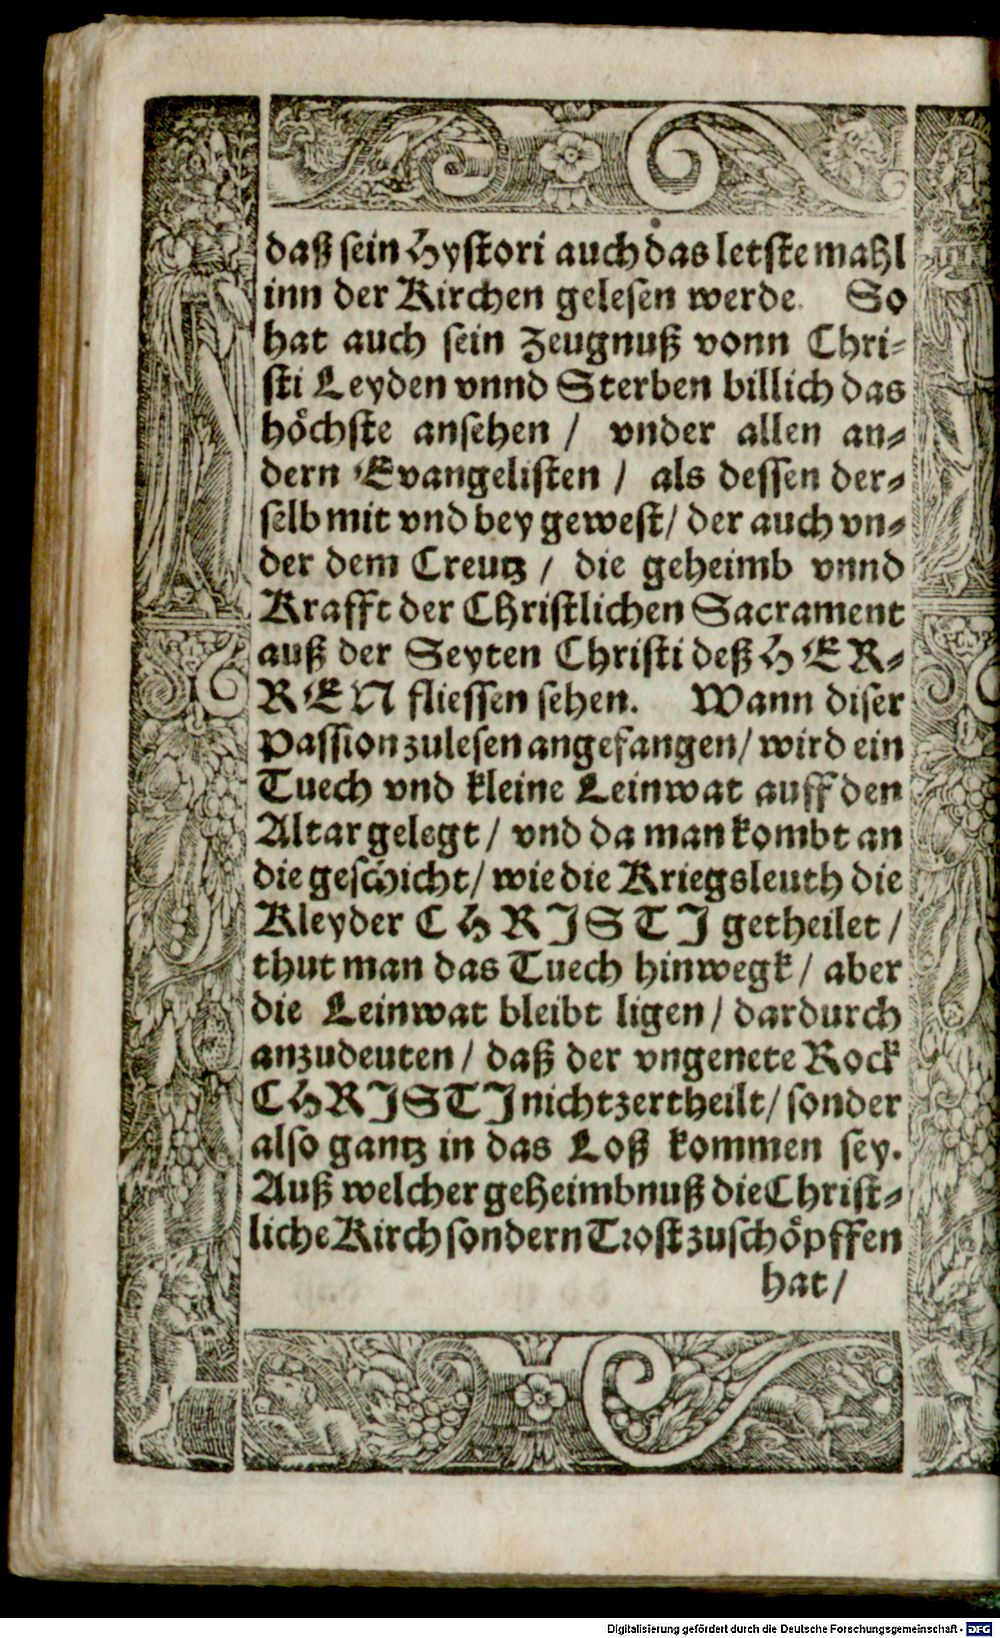 daß sein Hystori auch das letste mahl
inn der Kirchen gelesen werde. So
hat auch sein Zeugnuß vonn Chri-
sti Leyden vnnd Sterben billich das
höchste ansehen / vnder allen an-
dern Evangelisten / als dessen der-
selb mit vnd bey gewest / der auch vn-
der dem Creutz / die geheimb vnnd
Krafft der Christlichen Sacrament
auß der Seyten Christi deß HER-
REN fliessen sehen. Wann diser
Passion zulesen angefangen / wird ein
Tuech vnd kleine Leinwat auff den
Altar gelegt / vnd da man kombt an
die geschicht / wie die Kriegsleuth die
Kleyder CHRISTI getheilet /
thut man das Tuech hinwegk / aber
die Leinwat bleibt ligen / dardurch
anzudeuten / daß der vngenete Rock
CHRISTI nicht zertheilt / sonder
also gantz in das Loß kommen sey.
Auß welcher geheimbnuß die Christ-
liche Kirch sondern Trost zuschöpffen
hat /
Digitalisierung gefördert durch die Deutsche Forschungsgemeinschaft - DFG